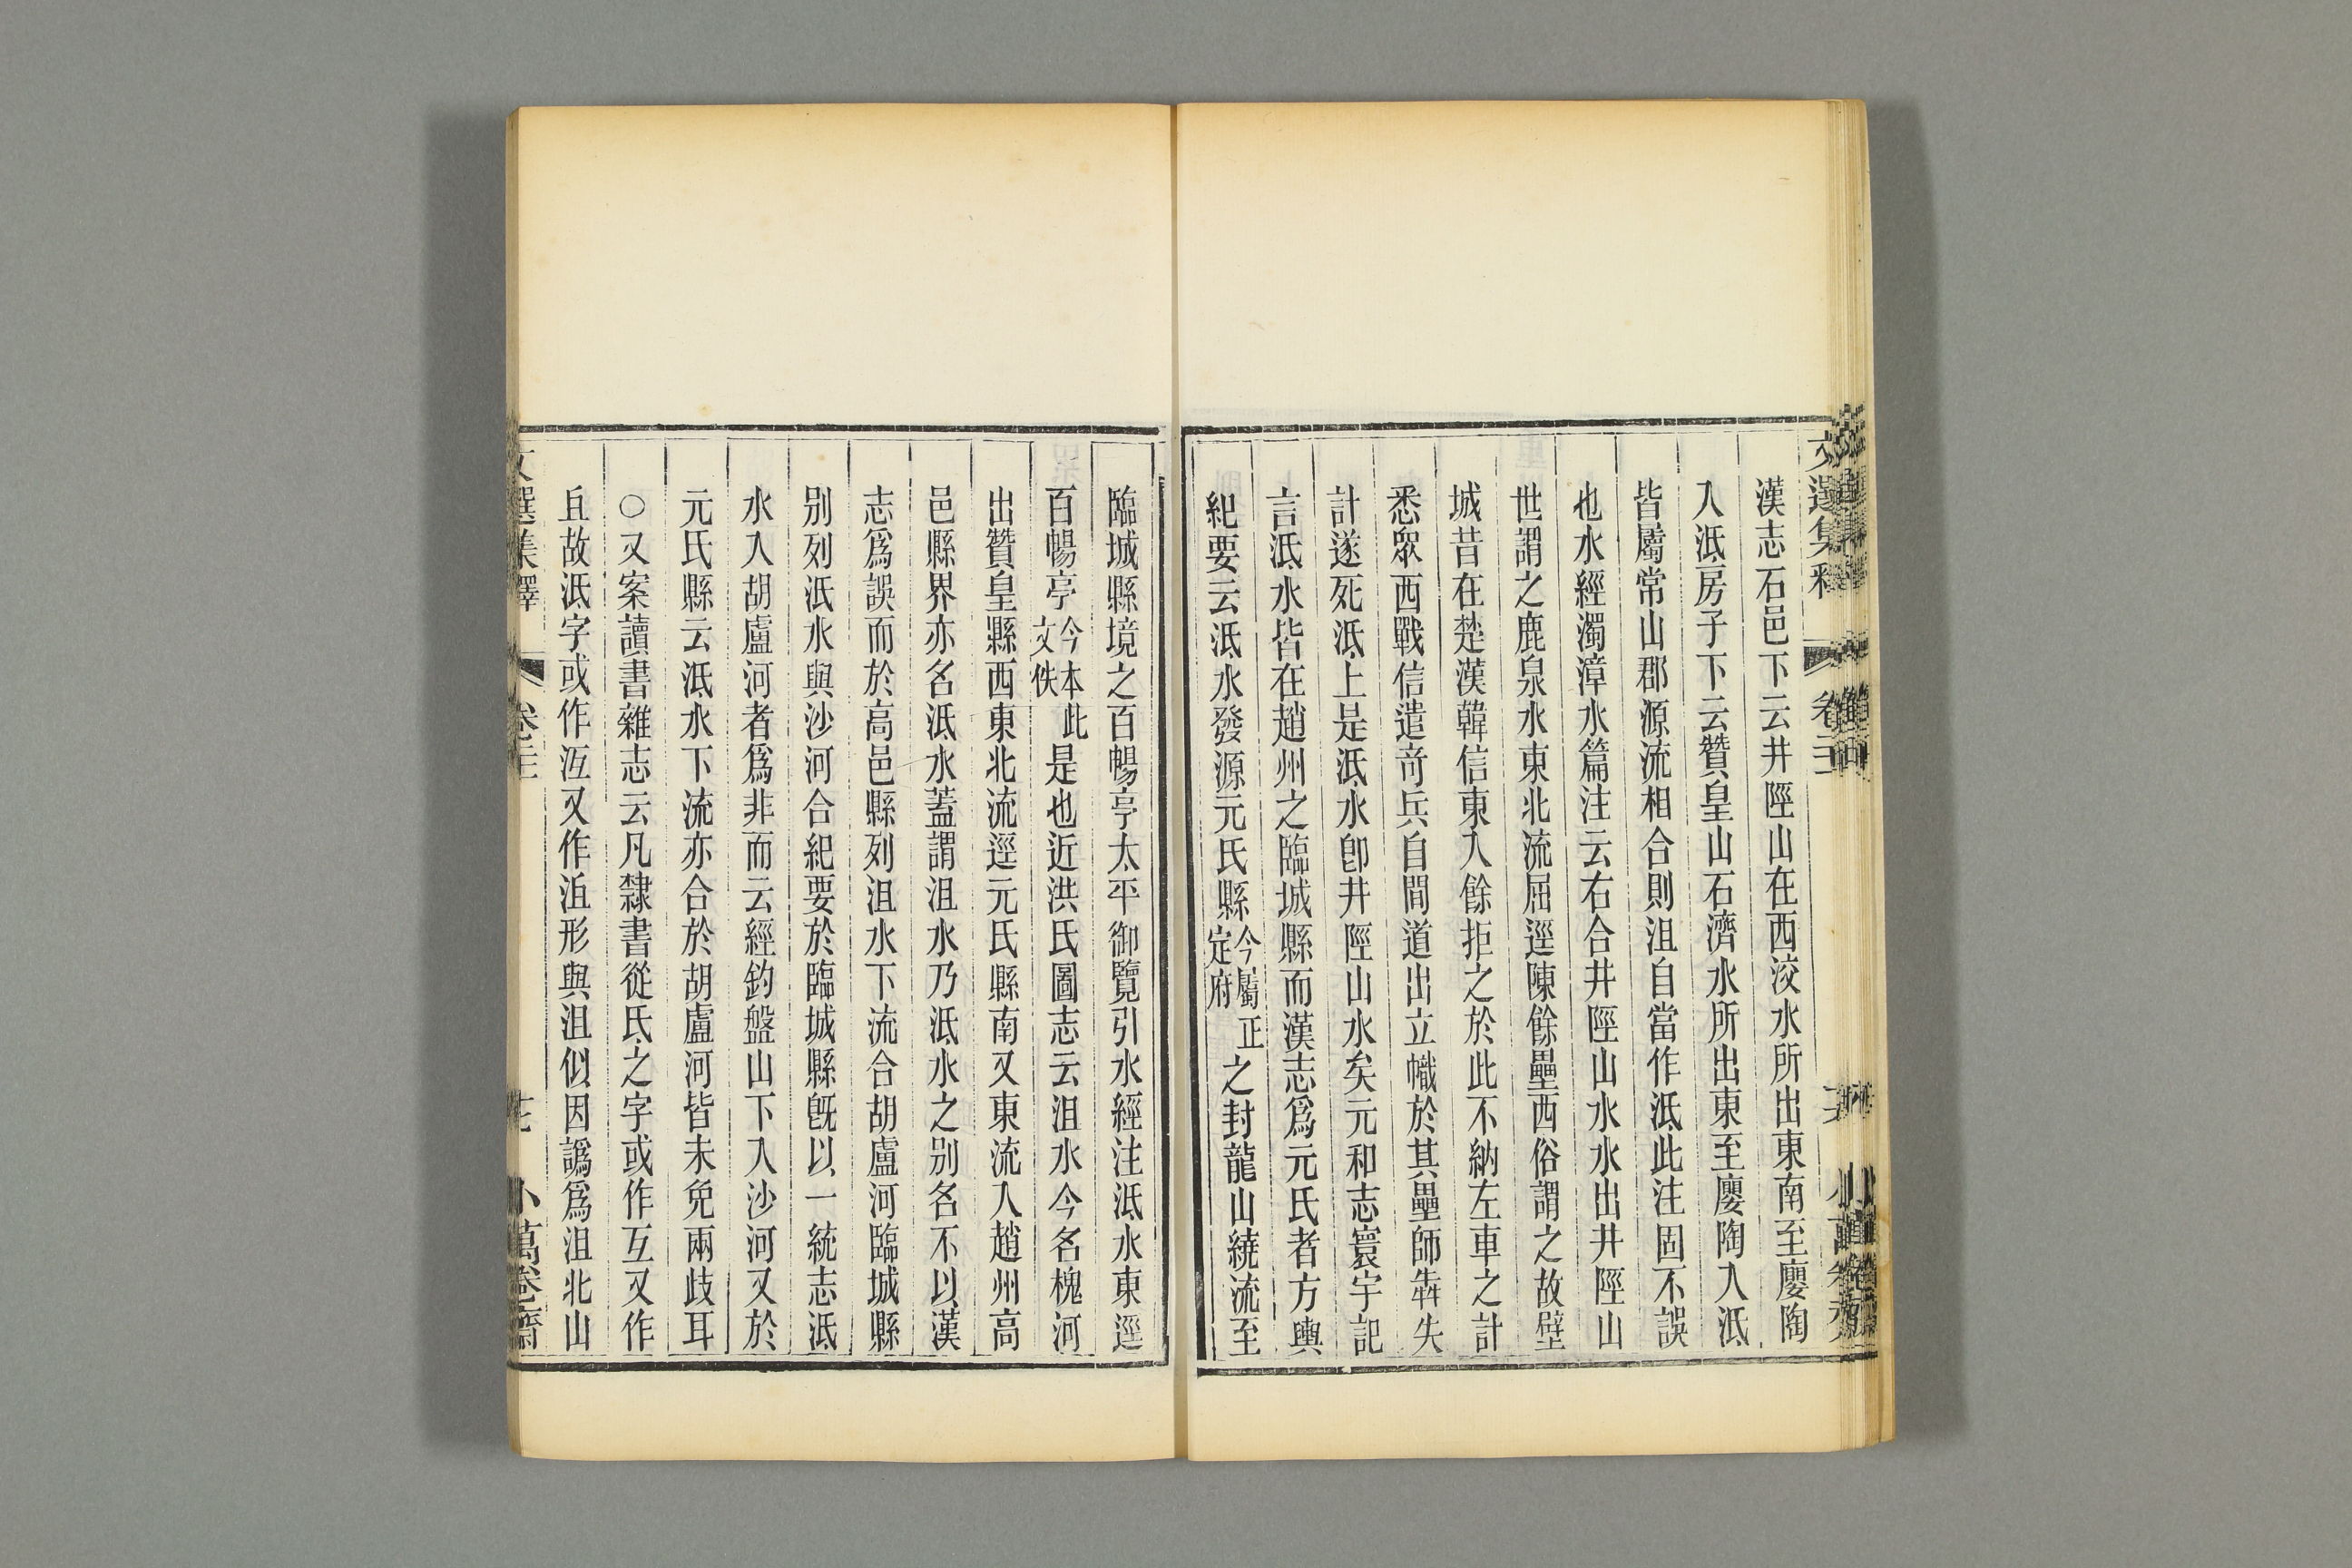 漢志石邑下云井陘山在西洨水所出東南至廮陶
入泜房子下云贊皇山石濟水所出東至廮陶入泜
皆屬常山郡源流相合則沮自當作泜此注固不誤
也水經濁漳水篇注云右合井陘山水水出井陘山
世謂之鹿泉水東北流屈逕陳餘壘西俗謂之故壁
城昔在楚漢韓信東入餘拒之於此不納左車之計
悉眾西戰信遣奇兵自間道出立幟於其壘師犇失
計遂死泜上是泜水卽井陘山水矣元和志寰宇記
言泜水皆在趙州之臨城縣而漢志爲元氏者方輿
紀要云泜水發源元氏縣今屬正定府之封龍山繞流至
臨城縣境之百暢亭太平御覽引水經注泜水東逕
百暢亭今本此文佚是也近洪氏圖志云沮水今名槐河
出贊皇縣西東北流逕元氏縣南又東流入趙州高
邑縣界亦名泜水蓋謂沮水乃泜水之别名不以漢
志爲誤而於高邑縣列沮水下流合胡盧河臨城縣
别列泜水與沙河合紀要於臨城縣旣以一統志泜
水入胡盧河者爲非而云經釣盤山下入沙河又於
元氏縣云泜水下流亦合於胡盧河皆未免兩歧耳
○又案讀書雜志云凡隸書從氐之字或作互又作
𠀇故泜字或作沍又作泹形與沮似因譌爲沮北山
文選集釋
小萬卷齋